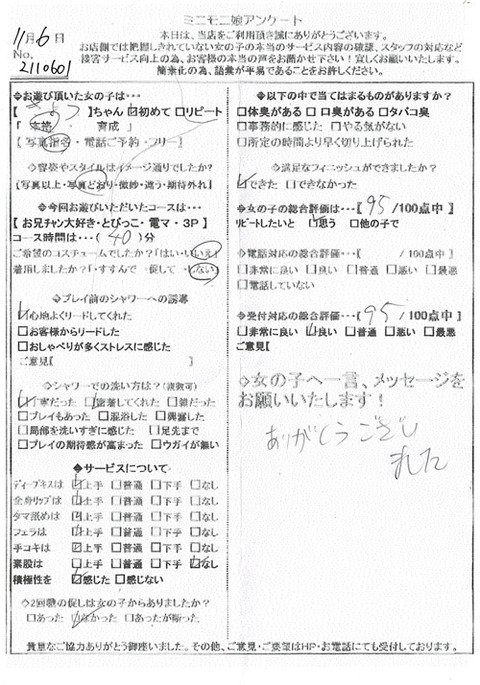 ミニモニ娘アンケート
11月6日
No.
2110601
本日は、当店をご利用頂き誠にありがとうございます。
お店側では把握しきれていない女の子の本当のサービス内容の確認、スタッフの対応など
接客サービス向上の為、お客様の本当の声をお聞かせ下さい!宜しくお願いいたします。
簡素化の為、語彙が平易であることをお許しください。
◇お遊び頂いた女の子は…
ちゃん ☑初めて □リピート
「 本格 ・ 育成 」
【写真指名・電話ご予約・フリー】
◇容姿やスタイルはイメージ通りでしたか?
【写真以上・写真どおり・微妙・違う・期待外れ】
◆今回お遊びいただいたコースは…
【お兄チャン大好き・とびっこ・電マ・3P】
コース時間は…( 40 )分
ご希望のコスチュームでしたか?「はい・いいえ」
着用しましたか?「・すすんで ・促して ・しない」
◆プレイ前のシャワーへの誘導
☑心地よくリードしてくれた
□お客様からリードした
□おしゃべりが多くストレスに感じた
ご意見【 】
◇シャワーでの洗い方は?(複数可)
☑丁寧だった ☑密着してくれた □雑だった
□プレイもあった □混浴した □興奮した
□局部を洗いすぎに感じた □足先まで
□プレイの期待感が高まった □ウガイが無い
◆サービスについて
ディープキスは ☑上手 □普通 □下手 □なし
全身リップは ☑上手 □普通 □下手 □なし
タマ舐めは ☑上手 □普通 □下手 □なし
フェラは ☑上手 □普通 □下手 □なし
手コキは ☑上手 □普通 □下手 □なし
素股は □上手 □普通 □下手 ☑なし
積極性を ☑感じた □感じない
◇2回戦の促しは女の子からありましたか?
□あった ☑なかった □あったが断った
◆以下の中で当てはまるものがありますか?
□体臭がある □口臭がある □タバコ臭
□事務的に感じた □やる気がない
□所定の時間より早く切り上げられた
◇満足なフィニッシュができましたか?
☑できた □できなかった
◆女の子の総合評価は…【 95 /100点中】
リピートしたいと ☑思う □他の子で
◇電話対応の総合評価…【 /100点中】
□非常に良い □良い □普通 □悪い □最悪
□電話していない
◆受付対応の総合評価…【 95 /100点中】
□非常に良い ☑良い □普通 □悪い □最悪
ご意見【
◇女の子へ一言、メッセージを
お願いいたします!
ありがとうござし
ました
貴重なご協力ありがとう御座いました。その他、ご意見・ご要望はHP・お電話にても受付しております。